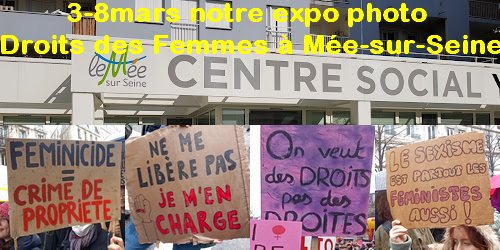 3-8mars notre expo photo
Droits des Femmes à Mée-sur-Seine
le Mée
sur Seine
CENTRE SOCIAL
FEMINICIDE
=
CRIME DE
PROPRIETE
NE ME
LIBÈRE PAS
JE M'EN
CHARGE
On veut
des DROITS
pas des
DROITES
LE SEXISME
EST PARTOUT LES
FEMINISTES
AUSSI !